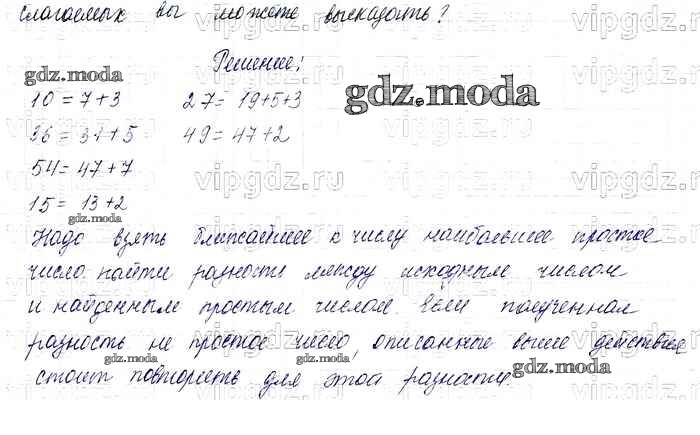 слагаемых вы можете высказать?
Решение:
10 = 7+3    27 = 19+5+3
36 = 31+5    49 = 47+2
54 = 47+7
15 = 13+2
Надо взять ближайшее к числу наибольшее простое
число найти разность между исходным числом
и найденным простым числом. Если полученная
разность не простое число, описанные выше действия
стоит повторить для этой разности.
gdz.moda
gdz.moda
gdz.moda
gdz.moda
gdz.moda
gdz.moda
vipgdz.ru
vipgdz.ru
vipgdz.ru
vipgdz.ru
vipgdz.ru
vipgdz.ru